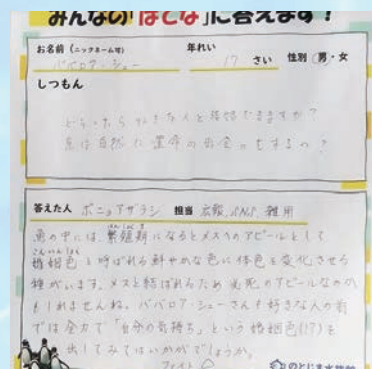 みんなの「はてな」に答えます！
お名前（ニックネーム可）
年れい
ババロア・シュー
17 さい 性別 男・女
しつもん
どうやったら好きな人と結婚できますか？
魚は自然に運命の出会いをするの？
答えた人 ポニョアザラシ 担当 広報、SNS、雑用
魚の中には、繁殖期になるとメスへのアピールとして
はんしょくき
こんいんしょく
婚姻色と呼ばれる鮮やかな色に体色を変化させる
種がいます。メスと結ばれるため必死のアピールなのか
もしれませんね。ババロア・シューさんも好きな人の前
では全力で「自分の気持ち」という婚姻色(!?)を
出してみてはいかがでしょうか。
ファイト
のとじま水族館